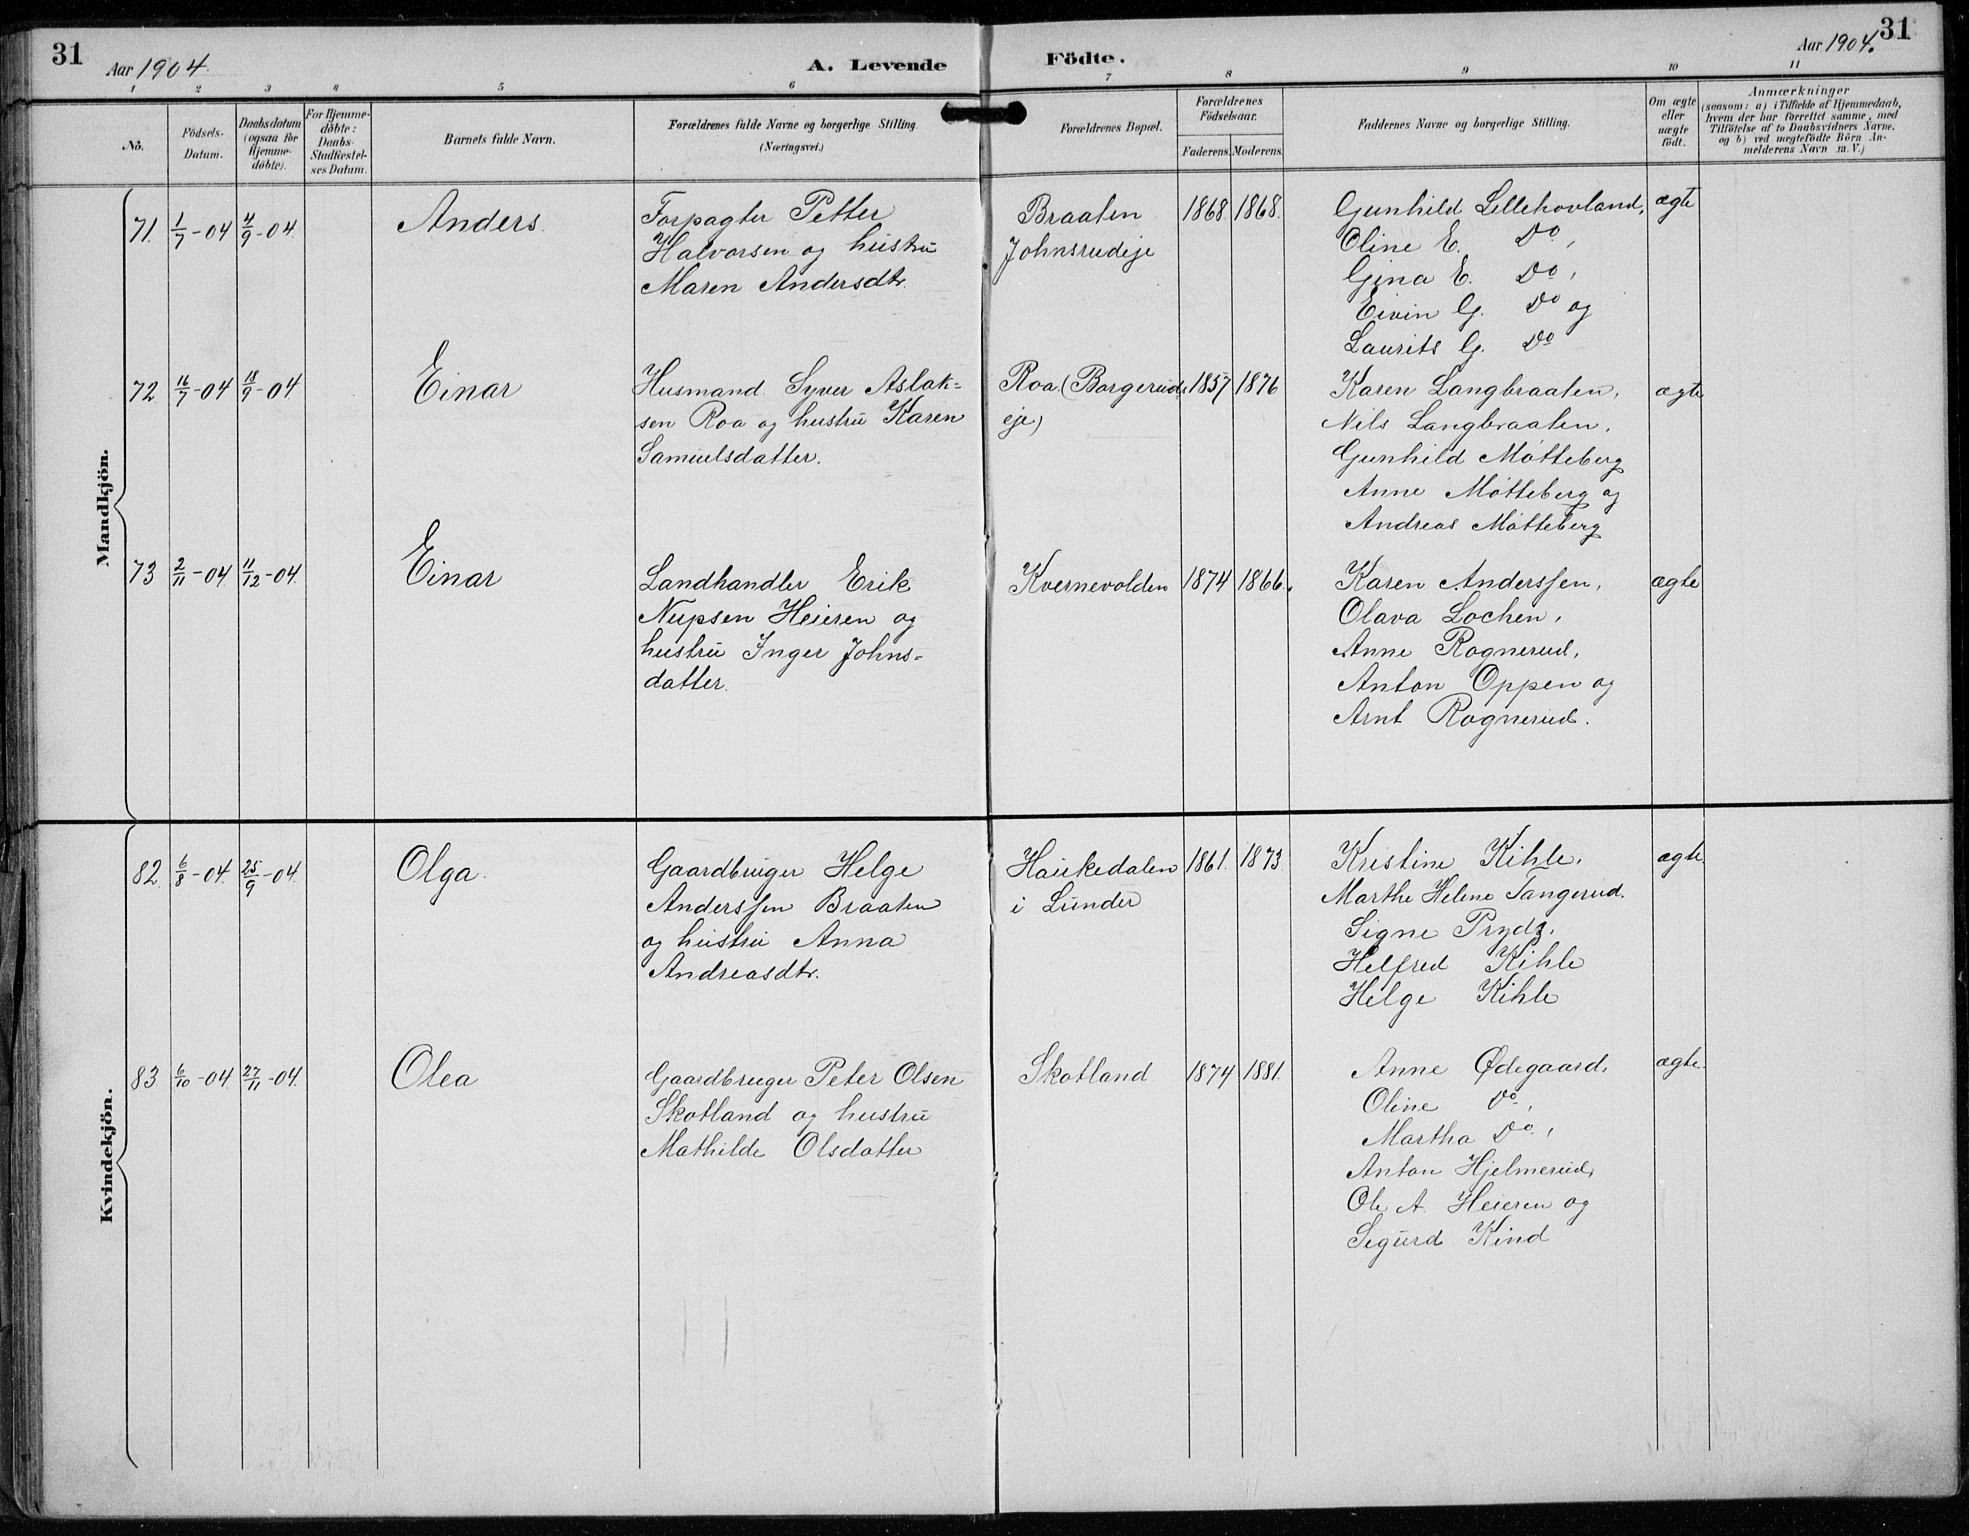 31
Aar 1904.
A. Levende Födte.
Aar 1904.
31
1 2 3 4 5 6 7 8 9 10 11
No.
Födsels-Datum.
Daabsdatum (ogsaa for Hjemme-döbte).
For Hjemme-döbte: Daabs-Stadfæstel-ses Datum.
Barnets fulde Navn.
Forældrenes fulde Navne og borgerlige Stilling.
(Næringsvei.)
Forældrenes Bopæl.
Forældrenes Födselsaar.
Faderens. Moderens.
Faddernes Navne og borgerlige Stilling.
Om ægte eller uægte født.
Anmærkninger
(saasom: a) i Tilfælde af Hjemmedaab,
hvem der har forrettet samme, med
Tilföielse af to Daabsvidners Navne.
og b) ved uægtefödte Börn An-
melderens Navn m. V.)
Mandkjön.
71. 1/7-04 4/9-04. Anders.
Forpagter Petter
Halvorsen og hustru
Maren Andersdtr.
Braaten
Johnsrudeje
1868. 1868.
Gunhild Lillehovland,
Oline E. Do,
Gina E. Do,
Eivin G. Do og
Laurits G. Do
ægte
72 16/7-04 18/9-04 Einar
Husmand Syver Aslak=
sen Roa og hustru Karen
Samuelsdatter.
Roa (Borgerud-
eje)
1857 1876
Karen Langbraaten,
Nils Langbraaten,
Gunhild Møtteberg
Anne Møtteberg og
Andreas Møtteberg
ægte
73 2/11-04. 11/12-04. Einar
Landhandler Erik
Nupsen Heieren og
hustru Inger Johns=
datter.
Kvernevolden
1874 1866.
Karen Anderssen,
Olava Lochen,
Anne Rognerud,
Anton Oppen og
Arnt Rognerud.
ægte
Kvindekjön.
82. 6/8-04. 25/9-04. Olga.
Gaardbruger Helge
Anderssen Braaten
og hustru Anna
Andreasdtr.
Haukedalen
i Lunder
1861. 1873.
Kristine Kihle,
Marthe Helene Tangerud.
Signe Prydz,
Helfred Kihle
Helge Kihle
ægte
83 6/10-04. 27/11-04. Olea
Gaardbruger Peter Olsen
Skotland og hustru
Mathilde Olsdatter
Skotland
1874 1881.
Anne Ødegaard,
Oline Do,
Martha Do,
Anton Hjelmerud,
Ole A. Heieren og
Sigurd Kind
ægte.